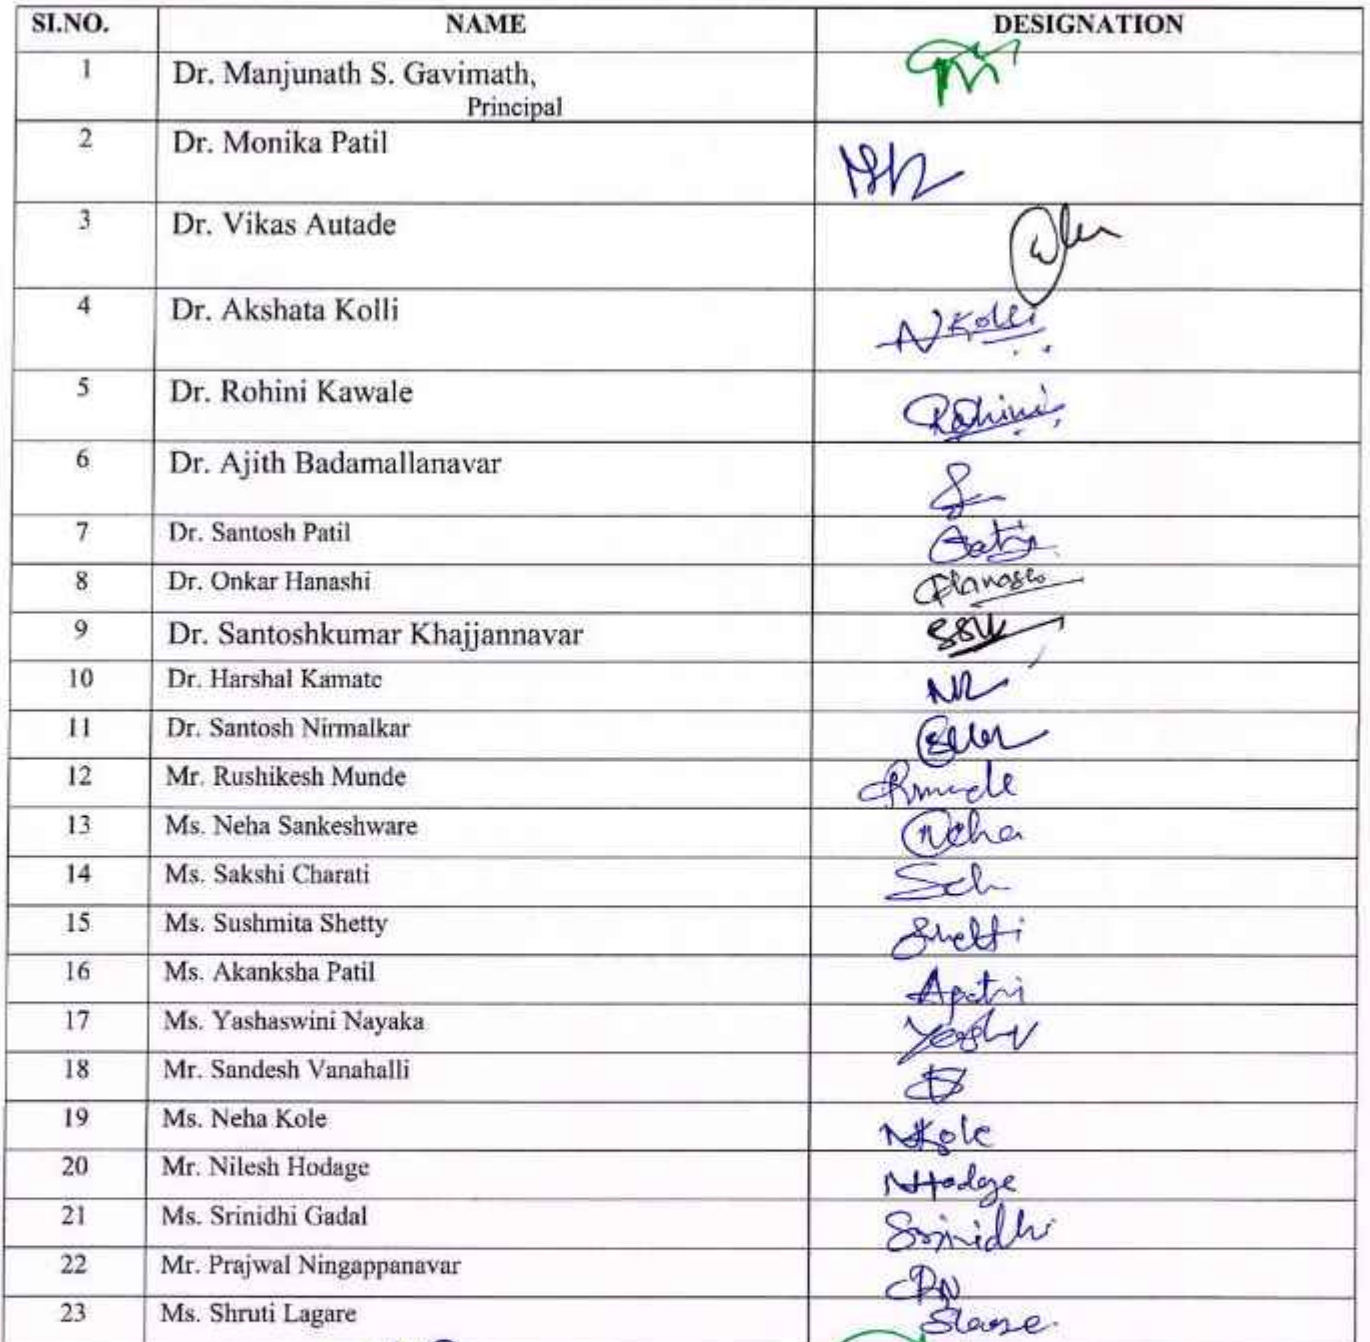 SI.NO. NAME DESIGNATION
1 Dr. Manjunath S. Gavimath,
Principal
2 Dr. Monika Patil
3 Dr. Vikas Autade
4 Dr. Akshata Kolli NKolli
5 Dr. Rohini Kawale Rohini
6 Dr. Ajith Badamallanavar
7 Dr. Santosh Patil
8 Dr. Onkar Hanashi
9 Dr. Santoshkumar Khajjannavar
10 Dr. Harshal Kamate
11 Dr. Santosh Nirmalkar
12 Mr. Rushikesh Munde
13 Ms. Neha Sankeshware Neha
14 Ms. Sakshi Charati
15 Ms. Sushmita Shetty
16 Ms. Akanksha Patil
17 Ms. Yashaswini Nayaka
18 Mr. Sandesh Vanahalli
19 Ms. Neha Kole NKole
20 Mr. Nilesh Hodage NHodge
21 Ms. Srinidhi Gadal Srinidhi
22 Mr. Prajwal Ningappanavar
23 Ms. Shruti Lagare